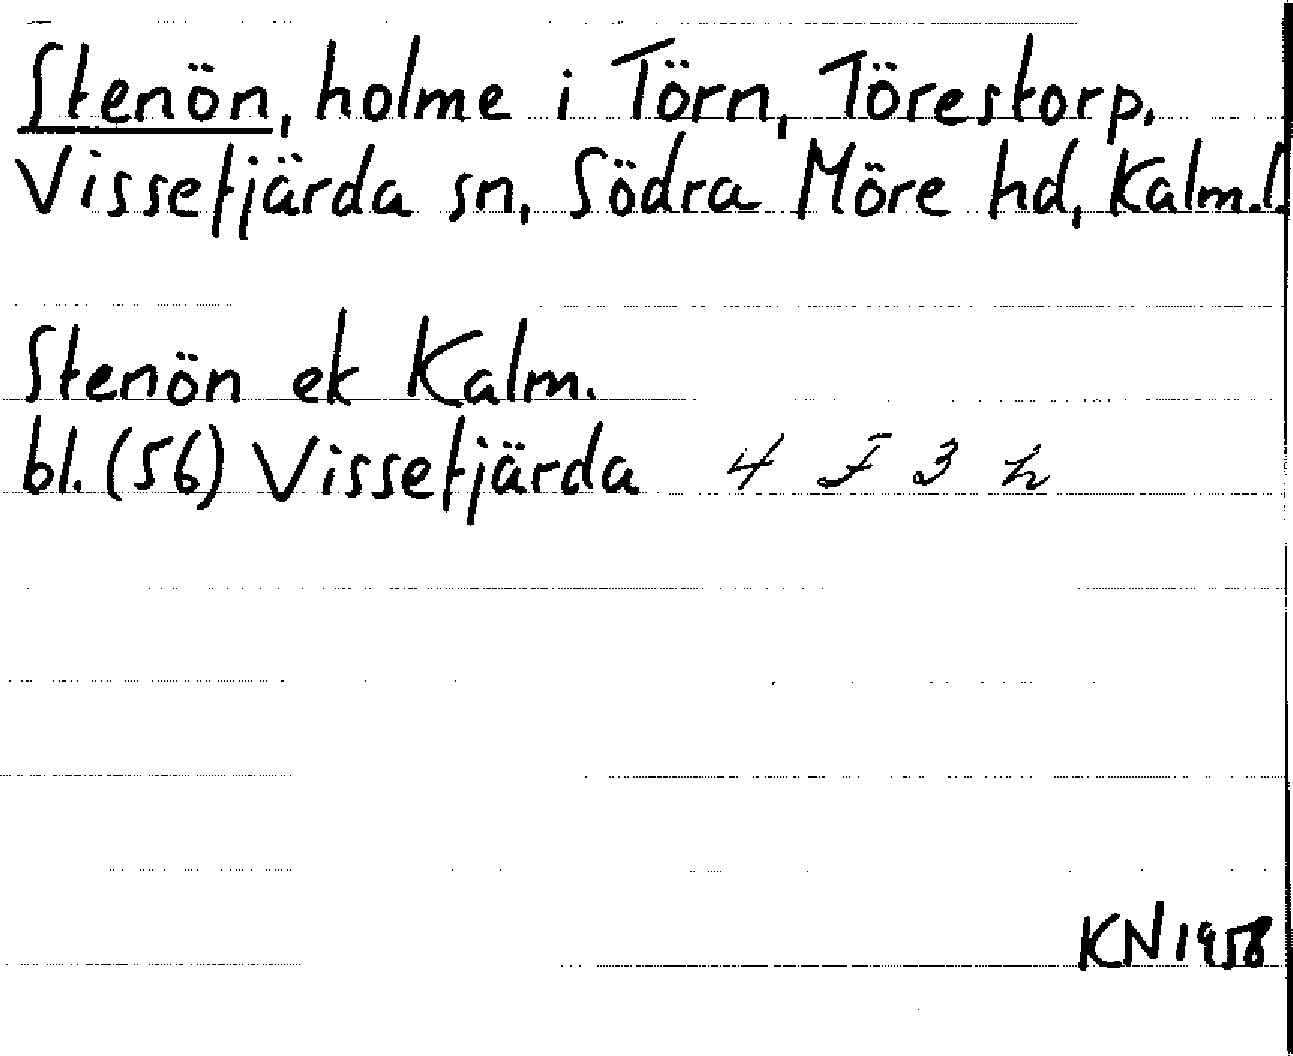 Stenön, holme i Törn, Törestorp.
Vissefjärda sn, Södra Möre hd, Kalm.l.
Stenön ek Kalm.
bl. (56) Vissefjärda 4 F 3 h
KN 1958